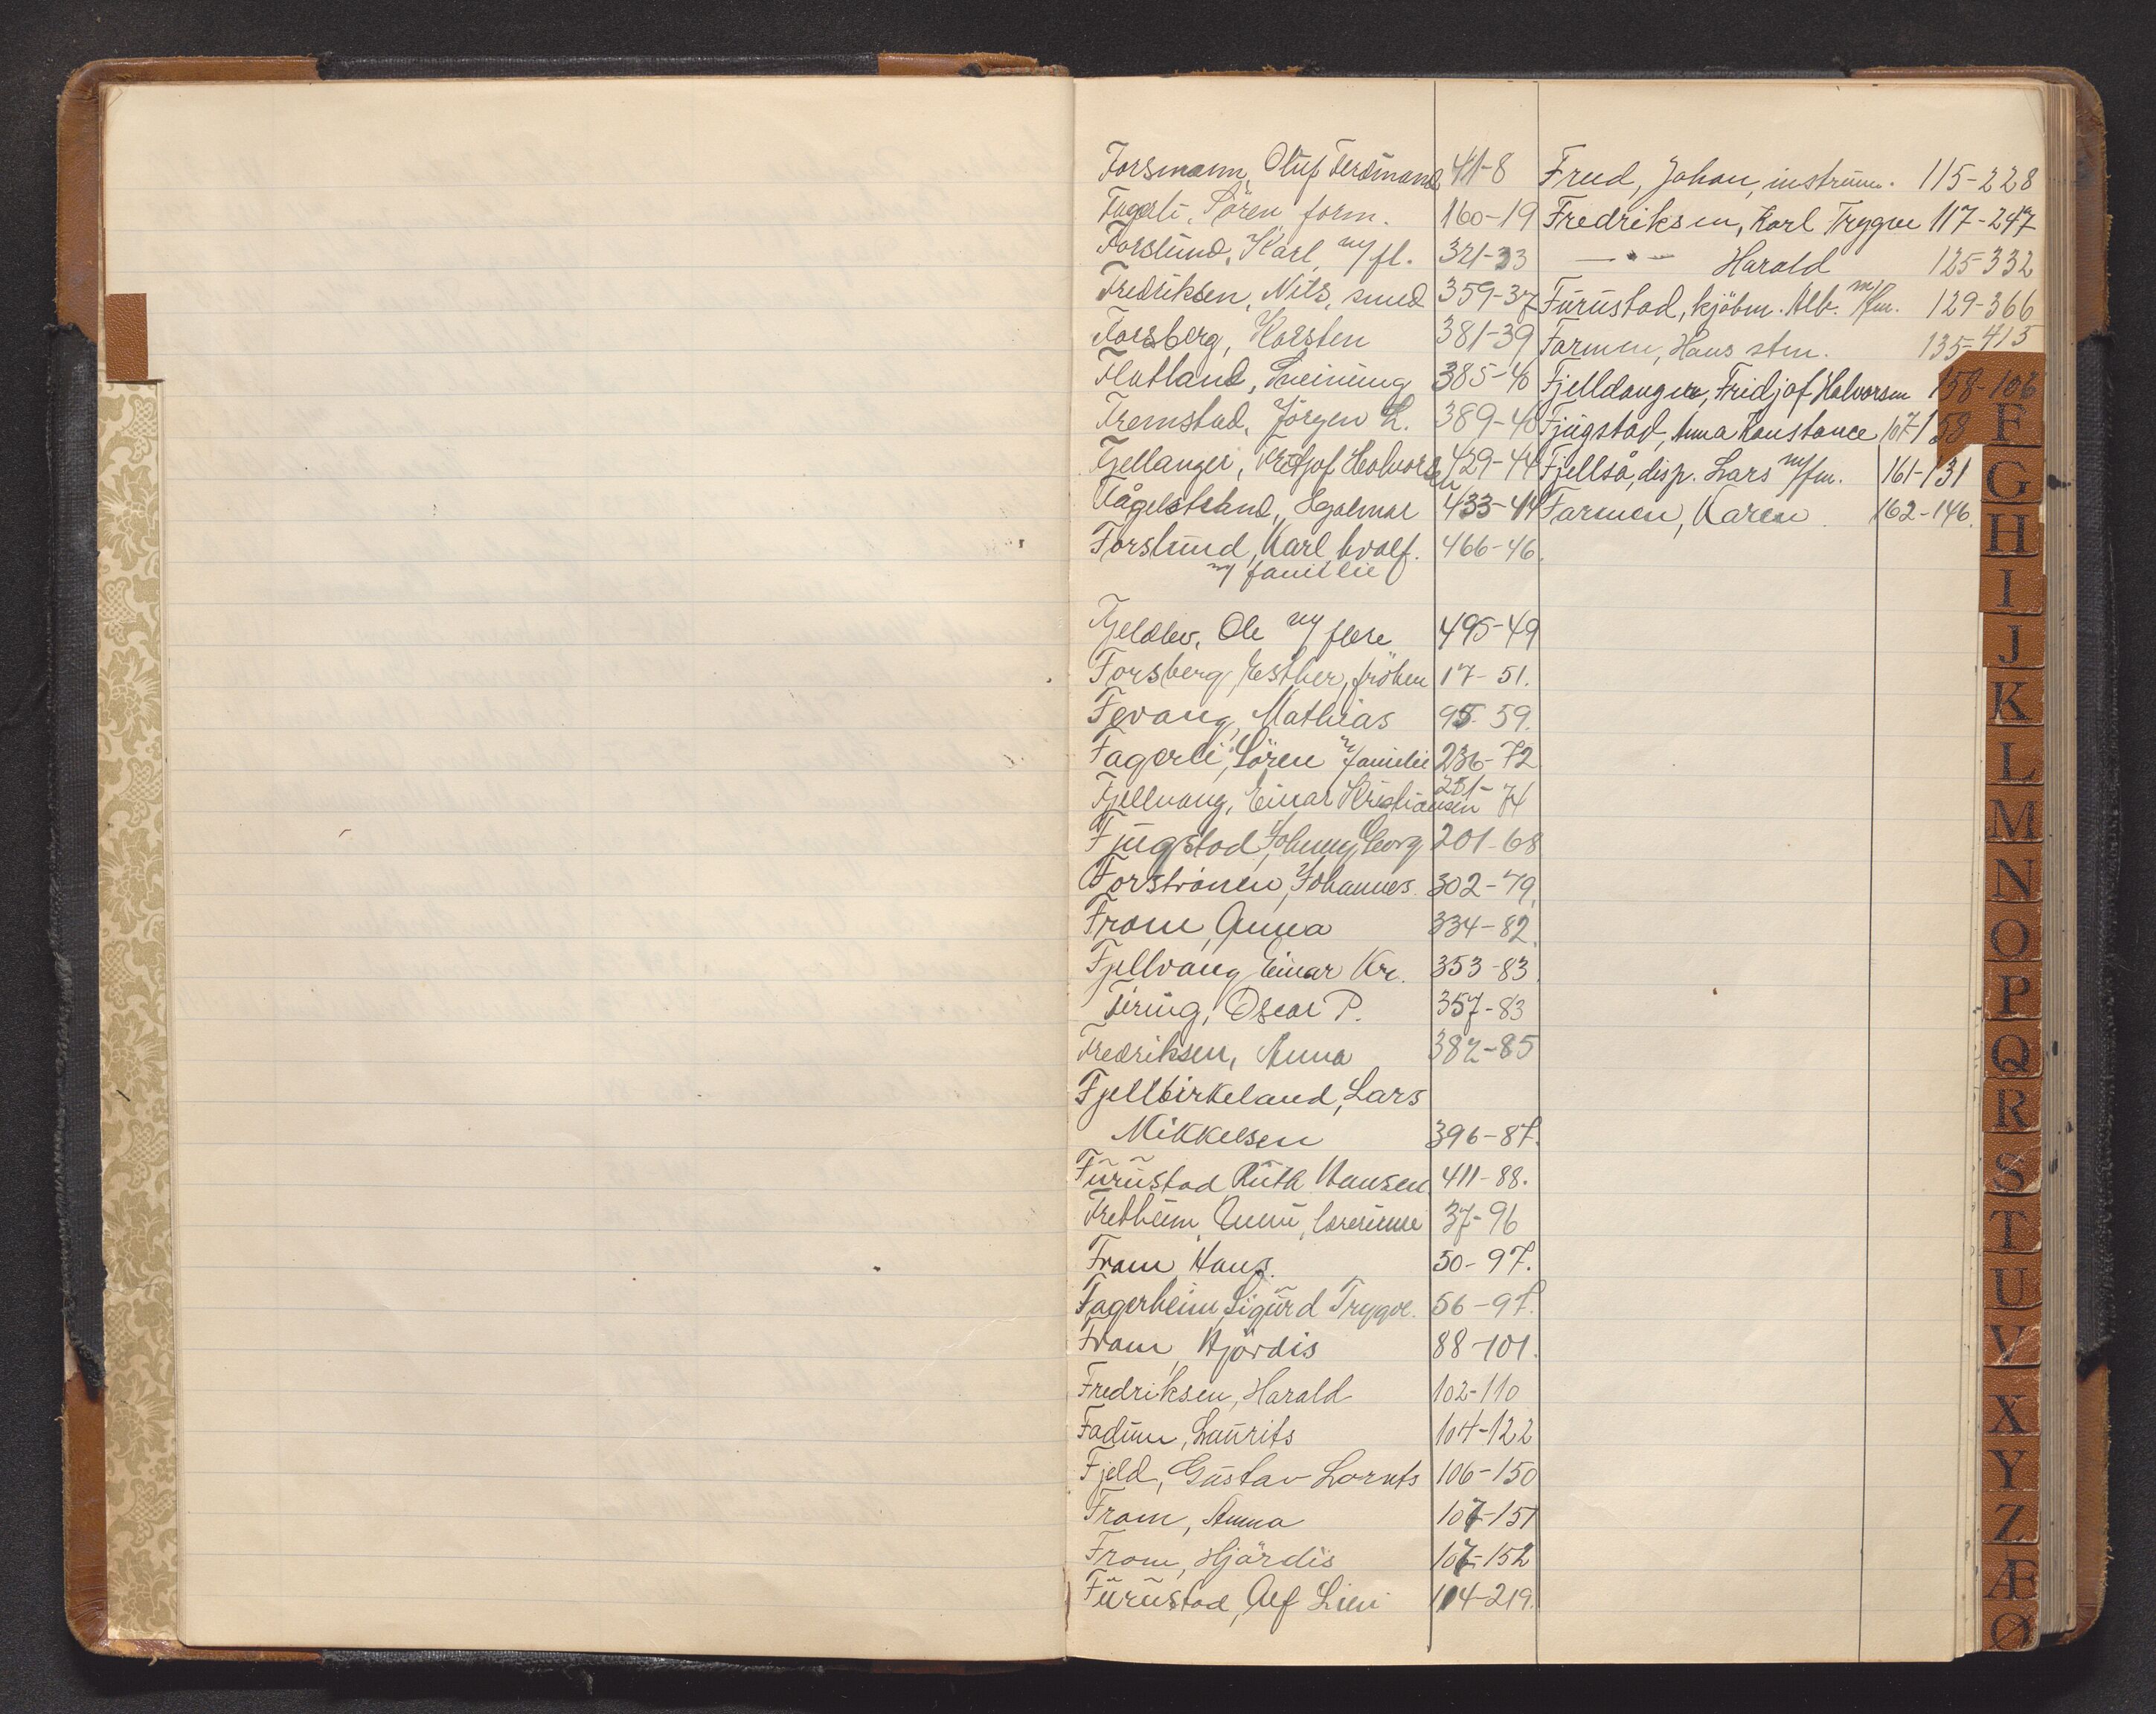 Forsmann, Oluf Ferdinand 41-8
Fagerli, Sören form. 160-19
Forslund, Karl m/fl. 321-33
Fredriksen, Nils, smed 359-37
Forsberg, Karsten 381-39
Flatland, Sveinung 385-40
Fremstad, Jörgen L. 389-40
Fjellanger, Fridtjof Halvorsen 429-44
Fågelstrand, Hjalmar 433-44
Forslund, Karl Adolf. 466-46.
m/ familie
Fjeldlev, Ole m/ flere 495-49
Forsberg, Esther, fröken 17-51.
Fevang, Mathias 95-59.
Fagerli, Sören m/familie 236-72
Fjellvang, Einar Kristiansen 251-74
Fjugstad, Johnny Georg 201-68
Forströnen, Johannes. 302-79.
Fram, Anna 334-82.
Fjellvang Einar Kr. 353-83.
Firing, Oscar P. 357-83
Fredriksen, Anna 382-85
Fjellbirkeland, Lars
Mikkelsen 396-87.
Furustad Ruth Hansen 411-88.
Fretheim, Unni, 37-96
Fram Hans. 50-97.
Fagerheim, Sigurd Trygve. 56-97.
Fram, Hjördis 88-101.
Fredriksen, Harald 102-110
Fadum, Laurits 104-122
Fjeld, Gustav Lornts 106-150
Fram, Anna 107-151
Fram, Hjördis 107-152
Furustad, Alf Lien 114-219.
Frud, Johan, instrum. 115-228
Fredriksen, Karl Trygve 117-247
— " — Harald 125-332
Furustad, kjöbm. Alb. m/fm. 129-366
Farmen, Hans stm. 135-415
Fjelldanger, Fridjof Halvorsen 158-106
Fjugstad, Anna Konstance 107-158
Fjellså, disp. Lars m/fm. 161-131
Farmen, Karen 162-146.
F
G
H
I
J
K
L
M
N
O
P
Q
R
S
T
U
V
X
Y
Z
Æ
Ø